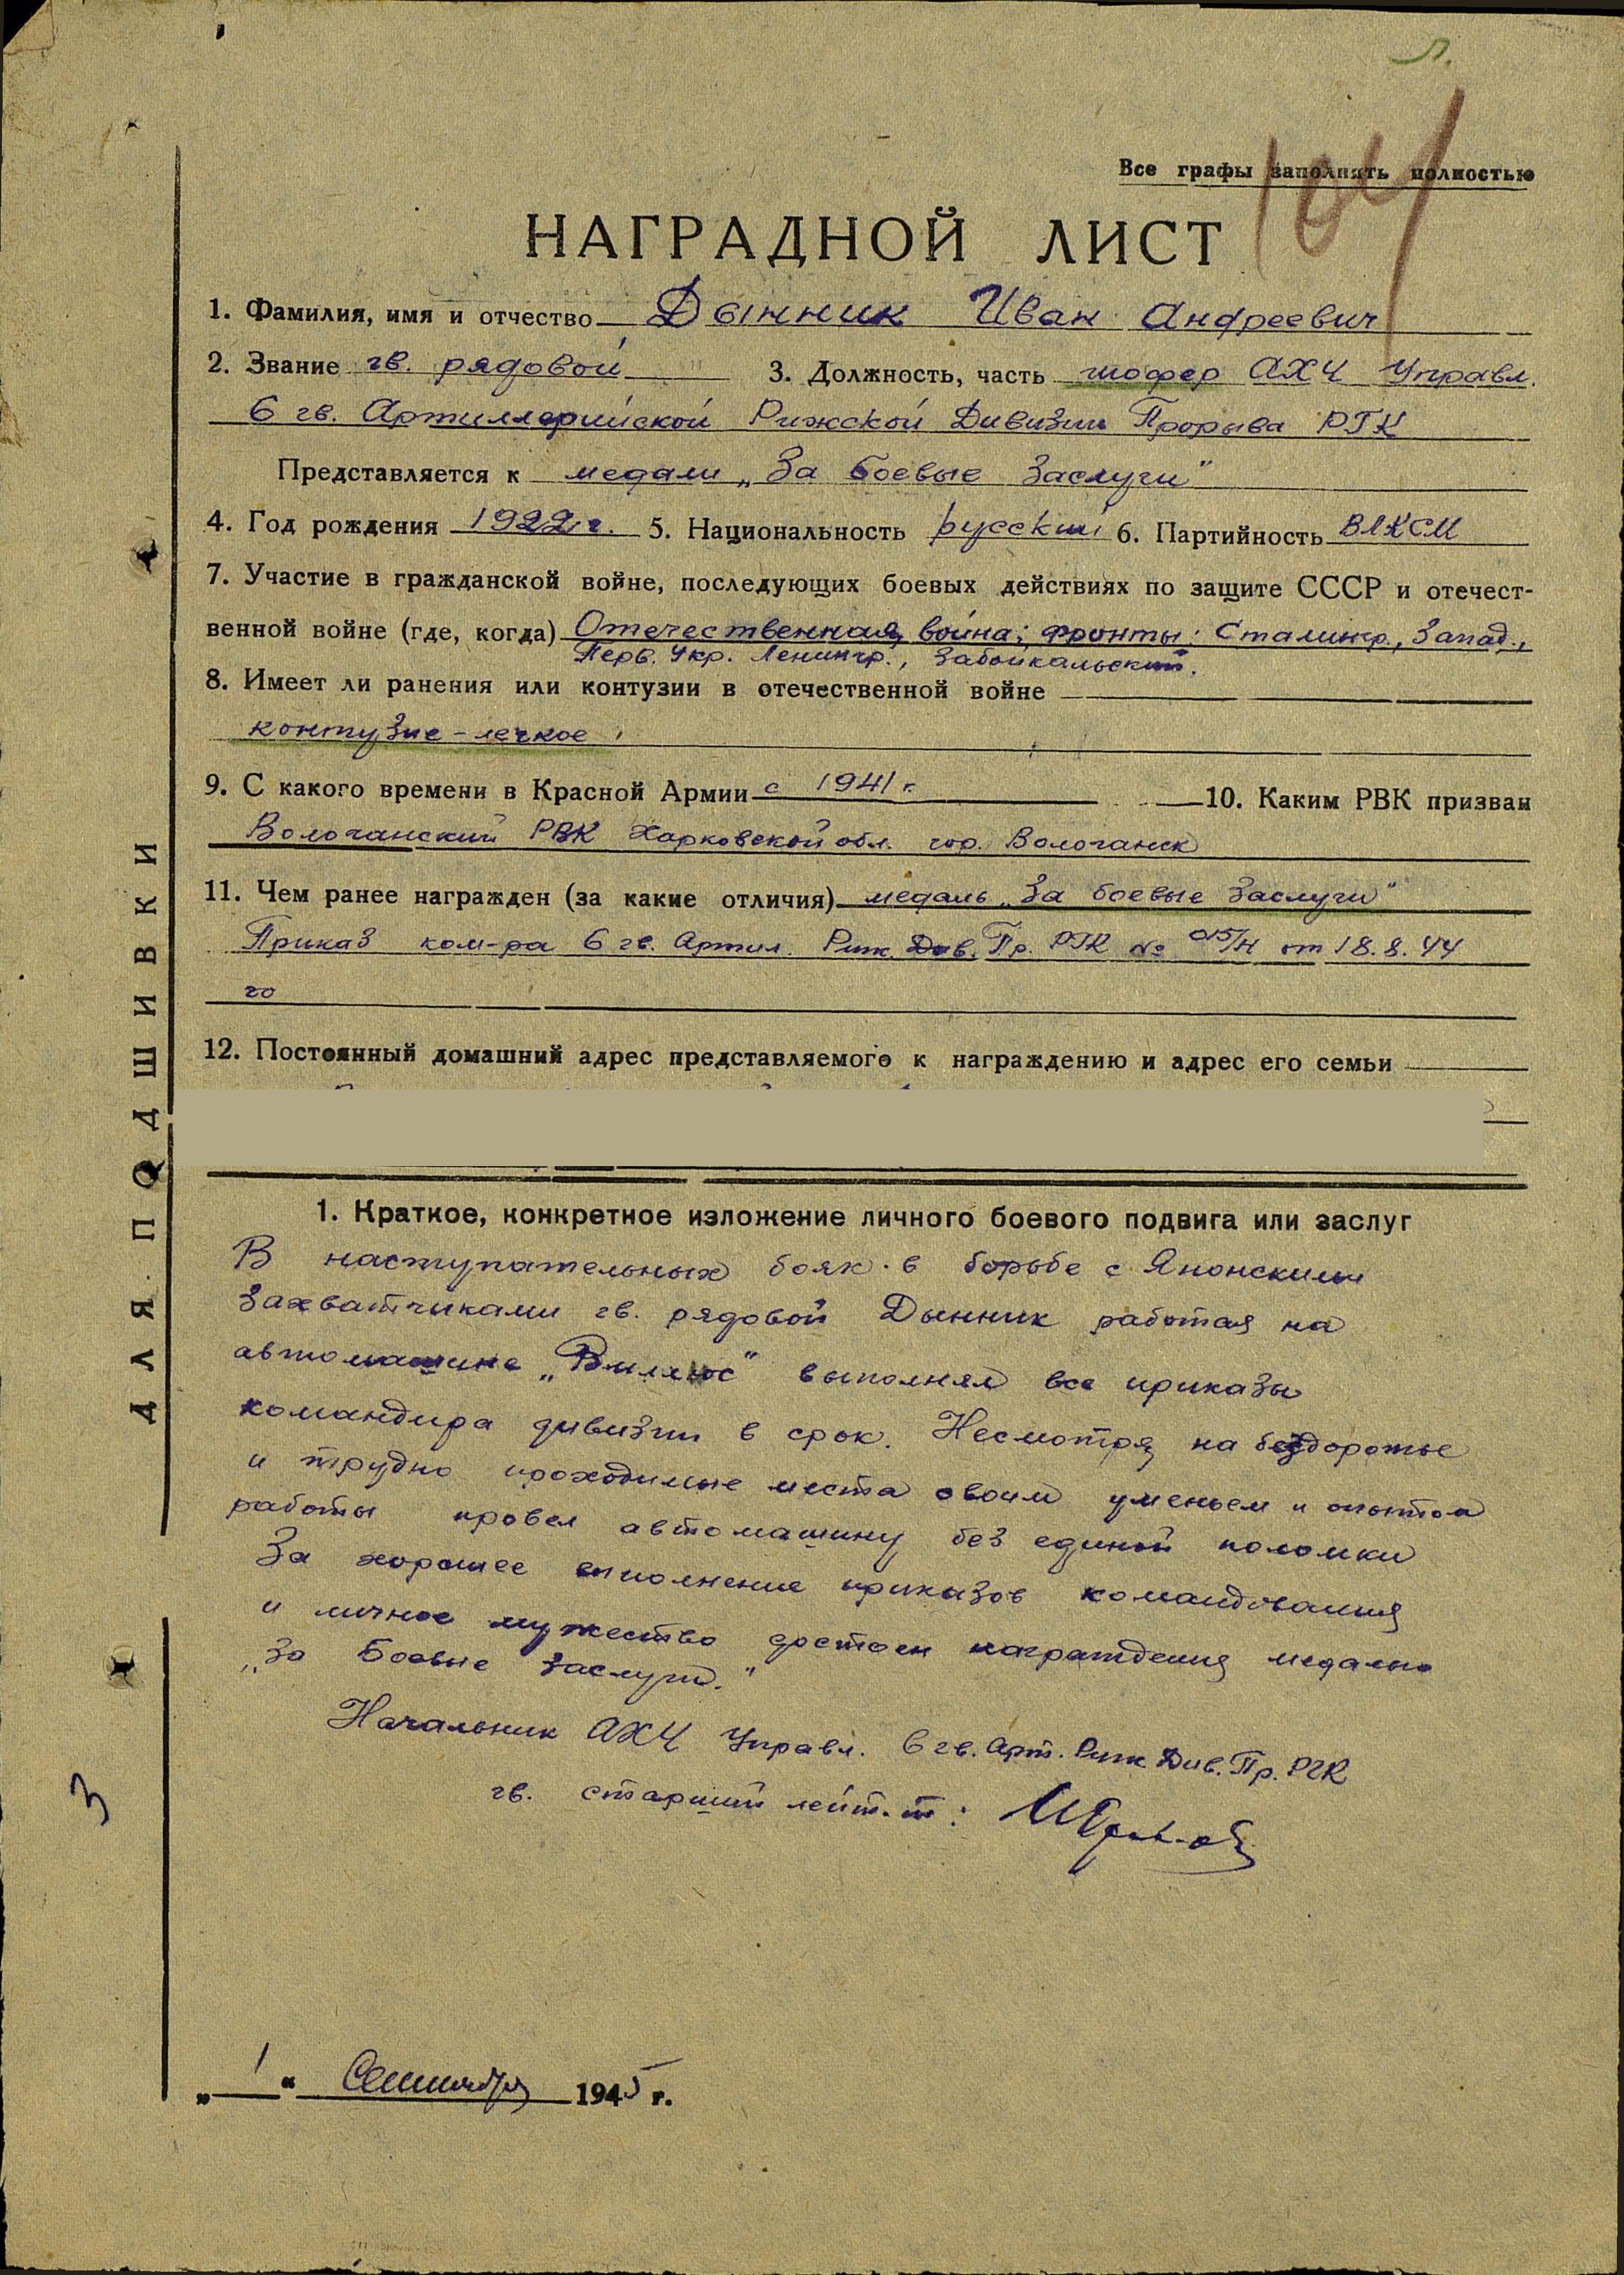 л.
104
Все графы заполнять полностью
НАГРАДНОЙ ЛИСТ
1. Фамилия, имя и отчество Дынник Иван Андреевич
2. Звание гв. рядовой 3. Должность, часть шофер АХЧ Управл.
6 гв. Артиллерийской Рижской Дивизии Прорыва РГК
Представляется к медали „За боевые Заслуги"
4. Год рождения 1922 г. 5. Национальность русский 6. Партийность ВЛКСМ
7. Участие в гражданской войне, последующих боевых действиях по защите СССР и отечест-
венной войне (где, когда) Отечественная война; фронты: Сталингр., Запад.,
Перв. Укр. Ленингр., Забойкальский.
8. Имеет ли ранения или контузии в отечественной войне
контузие - легкое
9. С какого времени в Красной Армии с 1941 г. 10. Каким РВК призван
Волочанский РВК Харковской обл. гор. Волочанск
11. Чем ранее награжден (за какие отличия) медаль „За боевые Заслуги"
Приказ ком-ра 6 гв. Артил. Риж. Див. Пр. РГК № 015/н от 18.8.44
го
12. Постоянный домашний адрес представляемого к награждению и адрес его семьи
1. Краткое, конкретное изложение личного боевого подвига или заслуг
В наступательных боях в борьбе с Японскими
Захватчиками гв. рядовой Дынник работая на
автомашине „Виллюс" выполнял все приказы
командира дивизии в срок. Несмотря на бездорожье
и трудно проходимые места своим уменьем и опытом
работы провел автомашину без единой поломки
За хорошее выполнение приказов командования
и личное мужество достоен награждения медалью
„За Боевые Заслуги."
Начальник АХЧ Управл. 6 гв. Арт. Риж Див. Пр. РГК
гв. старший лейт. т:
„1" Сентября 1945 г.
ДЛЯ ПОДШИВКИ
3